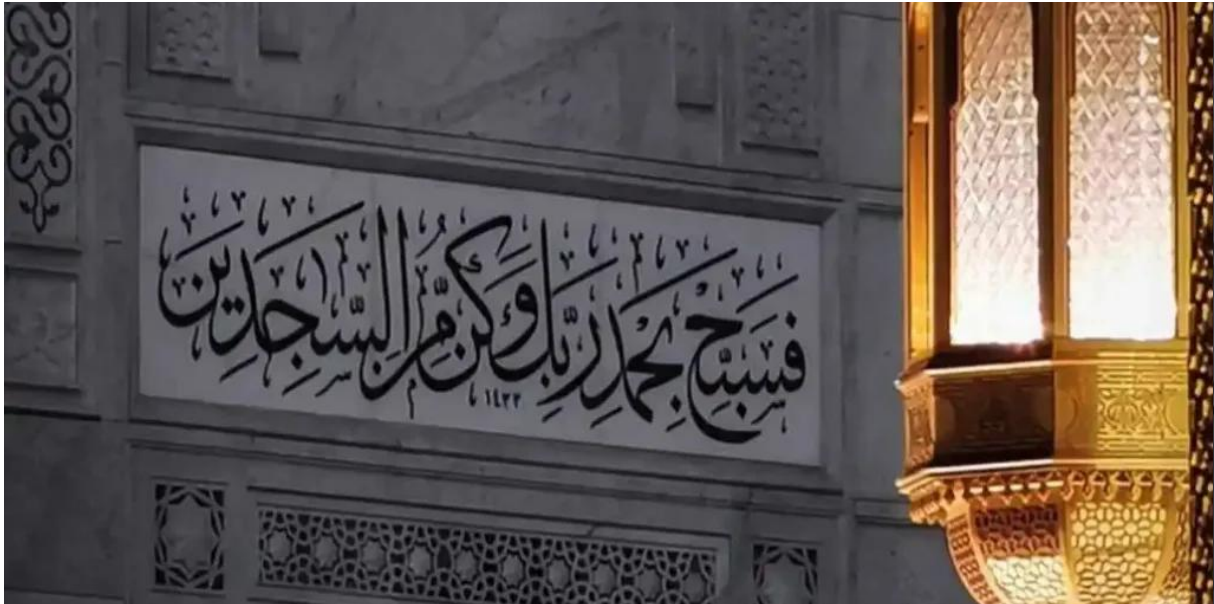 فَسَبِّحْ بِحَمْدِ رَبِّكَ وَكُنْ مِنَ السَّاجِدِينَ
١٤٣٣